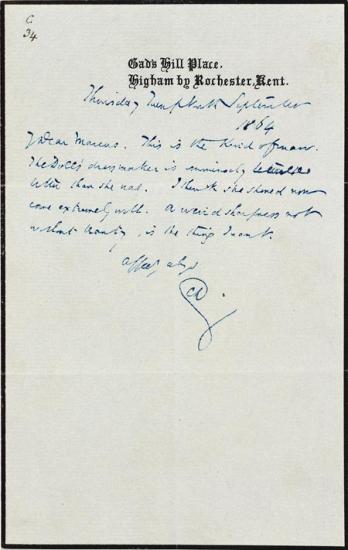 C
34
Gad's Hill Place,
Higham by Rochester, Kent.
Thursday September
1864
My Dear Marcus. This is the kind of man.
The Doll's dressmaker is immensely
better than she was. I think she should now
come extremely well. A weird sharpness not
without beauty, is the thing I want.